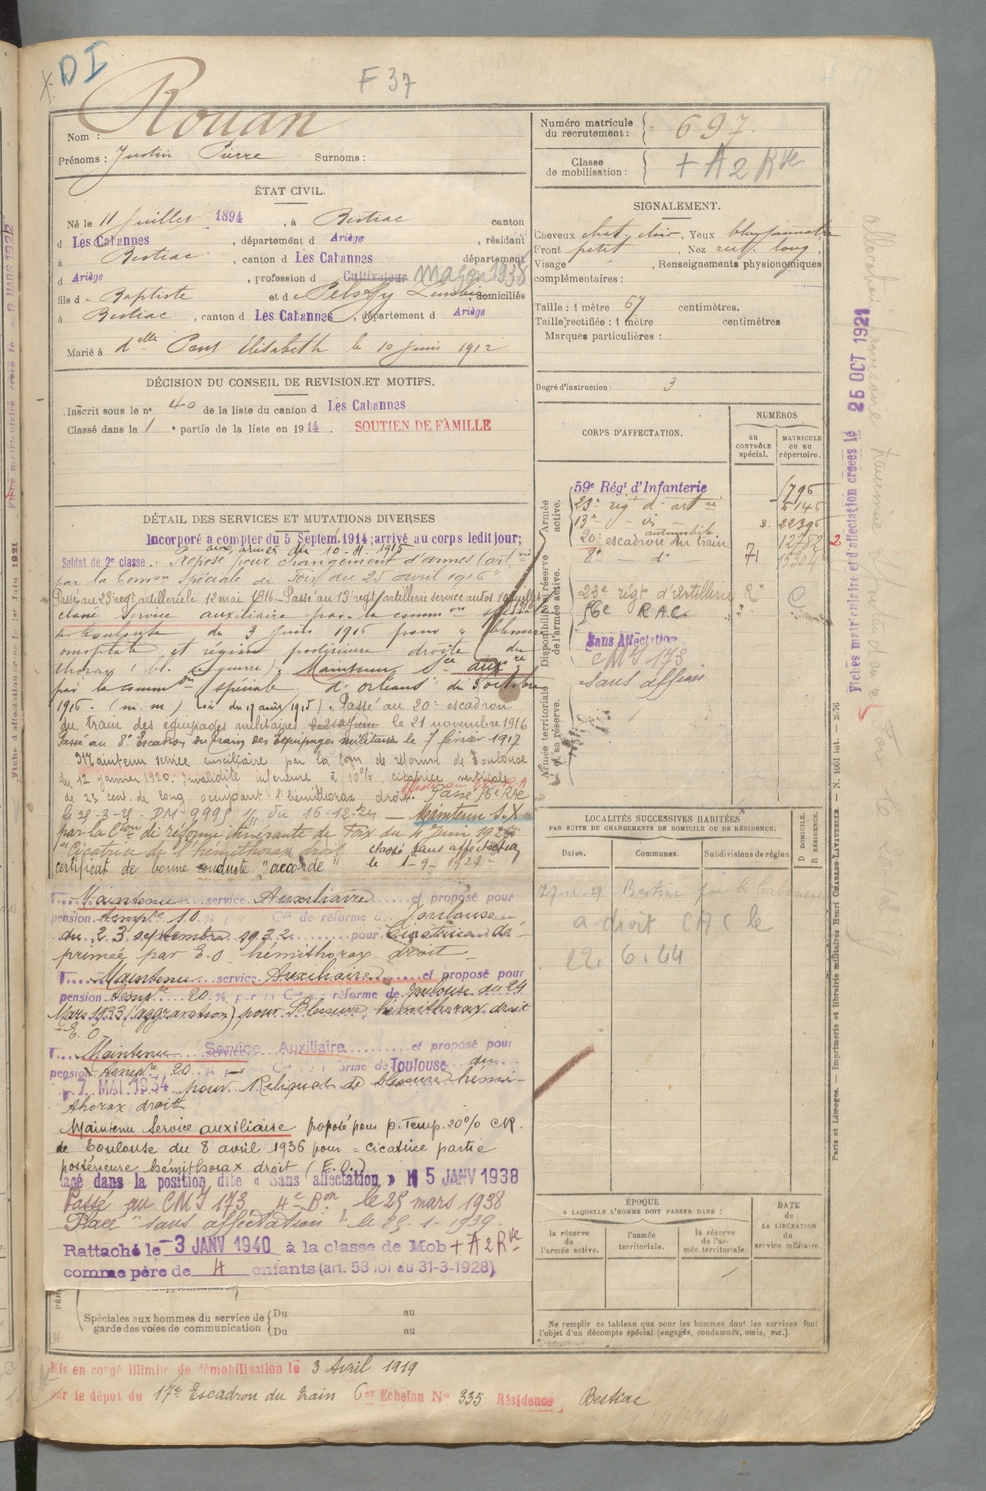 DI
F 37
Nom : Rouan
Prénoms : Justin Pierre Surnoms :
ÉTAT CIVIL.
Né le 11 Juillet 1894, à Bestiac canton
d Les Cabannes, département d Ariège, résidant
à Bestiac, canton d Les Cabannes département
d Ariège, profession d Cultivateur maçon 1938
fils d Baptiste et d domiciliés
à Bestiac, canton d Les Cabannes, département d Ariège
Marié à dlle Pont Elisabeth le 10 Juin 1912
DÉCISION DU CONSEIL DE REVISION ET MOTIFS.
Inscrit sous le n° 40 de la liste du canton d Les Cabannes
Classé dans la 1e partie de la liste en 1914. SOUTIEN DE FAMILLE
DÉTAIL DES SERVICES ET MUTATIONS DIVERSES
Incorporé à compter du 5 Septem. 1914; arrivé au corps ledit jour;
Soldat de 2e classe. aux armées du 10-11-1915
Reposé pour changement d'armes (art
par la Comon Spéciale de Foix du 25 avril 1916
Passé au 23e régt artillerie le 12 mai 1916. Passé au 13e régt artillerie service autos
classé Service auxiliaire par la common
de Toulouse du 3 Juin 1916 pour
omoplate et région postérieure droite du
thorax (bl. guerre); Maintenu Sce auxre
par la common spéciale d'Orléans du 3 octobre
1916. Passé au 20e escadron
du train des équipages militaires le 21 novembre 1916
Passé au 8e Escadron du train des Equipages militaires le 7 février 1917
Maintenu service auxiliaire par la Com de réforme de Toulouse
du 12 janvier 1920. Invalidité inférieure à 10% cicatrice verticale
de 23 cent. de long occupant l'hémithorax droit. Passé 56e RAC
le 25-3-25 - DM 9995 du 16-12-24 - Maintenu S.X
par la Cion de réforme itinérante de Foix du 4 Juin 192
"Cicatrice de l'hémithorax droit classé sans affectation
certificat de bonne conduite "accordé" le 1-9-192
Maintenu service Auxiliaire et proposé pour
pension temp 10 % par Con de réforme d Toulouse
du 23 septembre 1932 pour Cicatrice dé-
primée par E.O hémithorax droit
Maintenu service Auxiliaire et proposé pour
pension temp 20 % par la Con réforme de Toulouse du 24
Mars 1933 (aggravation) pour Blessure, hémithorax droit
E. O
Maintenu Service Auxiliaire et proposé pour
pension temp 20 % réforme de Toulouse du
7 MAI 1934 pour Reliquat de blessure hémi-
thorax droit
Maintenu Service auxiliaire proposé pour p. Temp. 20% CR.
de Toulouse du 8 avril 1936 pour = cicatrice partie
postérieure hémithorax droit (E.O.)
lacé dans la position dite « Sans affectation » 15 JANV 1938
Passé au CMI 173 4e Bon le 25 mars 1938
Placé "sans affectation" le 25-1-1939.
Rattaché le 3 JANV 1940 à la classe de Mob + A 2 Rve
comme père de 4 enfants (art. 58 loi du 31-3-1928)
Spéciales aux hommes du service de garde des voies de communication { Du au
Du au
Mis en congé illimité de démobilisation le 3 Avril 1919
par le dépôt du 17e Escadron du train 6er Echelon N° 335 Résidence Bestiac
Numéro matricule du recrutement : 697
Classe de mobilisation : + A 2 Rve
SIGNALEMENT.
Cheveux chat. clair, Yeux
Front petit, Nez rect. long,
Visage , Renseignements physionomiques
complémentaires :
Taille : 1 mètre 67 centimètres.
Taille rectifiée : 1 mètre centimètres
Marques particulières :
Degré d'instruction : 3
CORPS D'AFFECTATION.
NUMÉROS
AU CONTRÔLE spécial.
MATRICULE OU AU répertoire.
Armée active.
Disponibilité et réserve de l'armée active.
Armée territoriale et sa réserve.
59e Régt d'Infanterie
23e régt d'artie
13e
20e escadron du train
8e - do
23e régt d'artillerie
56e RAC
Sans Affectation
CMI 173
Sans affion
LOCALITÉS SUCCESSIVES HABITÉES
PAR SUITE DE CHANGEMENTS DE DOMICILE OU DE RÉSIDENCE.
Dates.
Communes.
Subdivisions de région
D DOMICILE.
R RÉSIDENCE.
Bestiac par les Cabannes
a droit CAC le
22. 6. 44
ÉPOQUE
A LAQUELLE L'HOMME DOIT PASSER DANS :
la réserve de l'armée active.
l'armée territoriale.
la réserve de l'armée territoriale
DATE de LA LIBÉRATION du service militaire
Ne remplir ce tableau que pour les hommes dont les services font l'objet d'un décompte spécial (engagés, condamnés, omis, etc.)
Fiches matriculaire et d'affectation créées le 25 OCT 1921
Paris et Limoges. — Imprimerie et librairie militaires Henri CHARLES-LAVAUZELLE.